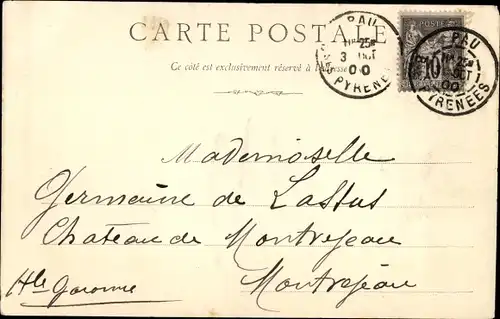 CARTE POSTALE
Ce côté est exclusivement réservé à l'adresse
PAU
25
3 OCT
00
PYRENEES
POSTE
10
PAU
OCT
00
PYRENEES
Mademoiselle
Germaine de Lassus
Chateau de Montrejeau
Montrejeau
Hte Garonne